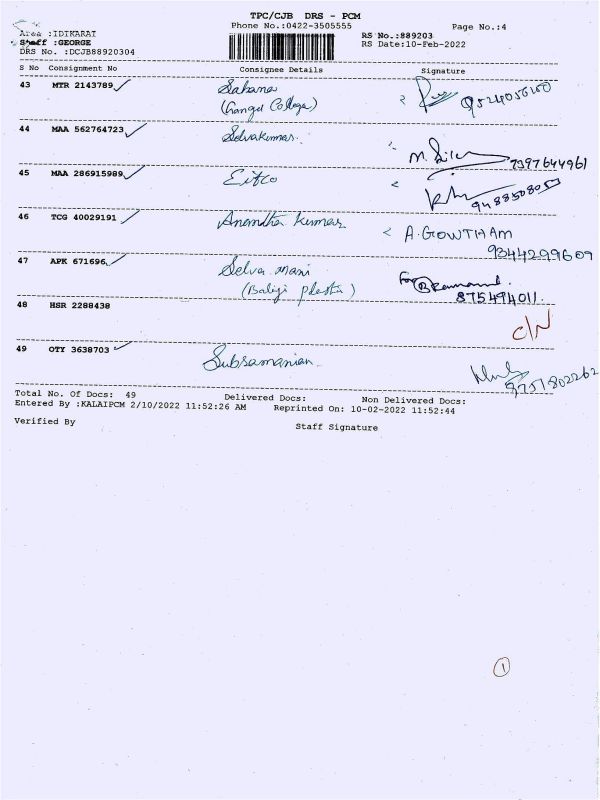 TPC/CJB DRS - PCM
Phone No.:0422-3505555
Page No.:4
Area :IDIKARAT
Staff :GEORGE
DRS No. :DCJB88920304
RS No.:889203
RS Date:10-Feb-2022
S No Consignment No Consignee Details Signature
43 MTR 2143789 Sahana
(Ganga College) 9524056160
44 MAA 562764723 Selvakumar
7397644961
45 MAA 286915989 Eitco
46 TCG 40029191 Anandha kumar A. GOWTHAM
9344299609
47 APK 671696 Selva mani For
(Balaji plastic) 875494011
48 HSR 2288438 C/N
49 OTY 3638703 Subramanian
9751802262
Total No. Of Docs: 49 Delivered Docs: Non Delivered Docs:
Entered By :KALAIPCM 2/10/2022 11:52:26 AM Reprinted On: 10-02-2022 11:52:44
Verified By Staff Signature
1